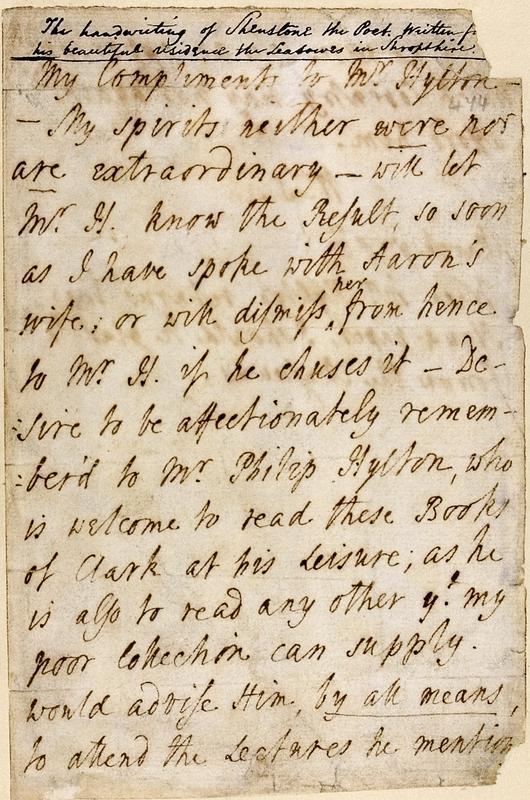 The handwriting of Shenstone the Poet. Written f
his beautiful residence the Leasowes in Shropshire.
My Compliments to Mr. Hylton —
— My spirits neither were nor
are extraordinary — will let
Mr. H. know the Result, so soon
as I have spoke with Aaron's
wife; or will dismiss her from hence
to Mr. H. if he chuses it — De-
sire to be affectionately remem-
ber'd to Mr. Philip Hylton, who
is welcome to read these Books
of Clark at his Leisure; as he
is also to read any other yt. my
poor Collection can supply.
would advise Him, by all means,
to attend the Lectures he mention